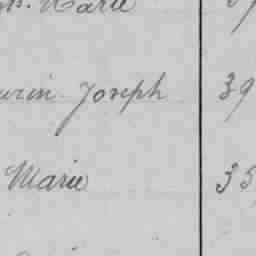 Marie
urin Joseph 39
Marie 35